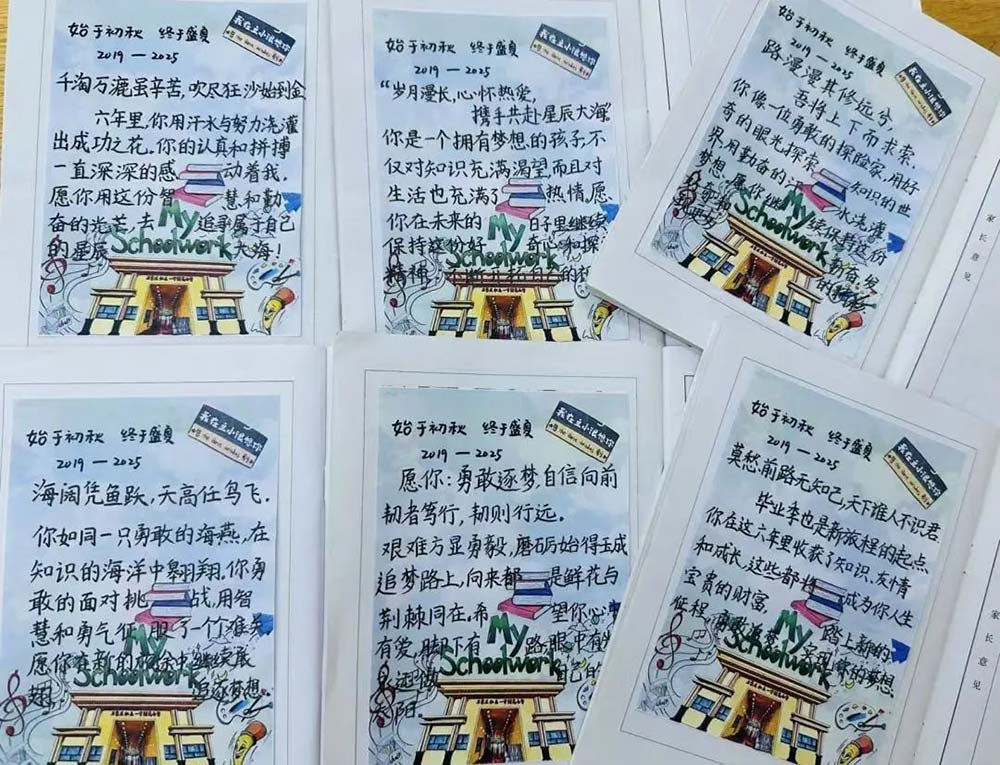 始于初秋 终于盛夏
我在立小很想你
2019—2025
千淘万漉虽辛苦,吹尽狂沙始到金
六年里,你用汗水与努力浇灌
出成功之花。你的认真和拼搏
一直深深的感动着我.
愿你用这份智慧和勤
奋的光芒,去追寻属于自己
的星辰大海!
My
Schoolwork
始于初秋 终于盛夏
我在立小很想你
2019—2025
“岁月漫长,心怀热爱,
携手共赴星辰大海”
你是一个拥有梦想的孩子,不
仅对知识充满渴望而且对
生活也充满了热情.愿
你在未来的日子里继续
保持这份好奇心和探
精神
My
Schoolwork
始于初秋 终于盛夏
我在立小很想你
2019—2025
路漫漫其修远兮,
吾将上下而求索.
你像一位勇敢的探险家,用好
奇的眼光探索知识的世
界.用勤奋的汗水浇灌
梦想.愿你继续保持这份
勤奋,
My
Schoolwork
家长意见
始于初秋 终于盛夏
我在立小很想你
2019—2025
海阔凭鱼跃,天高任鸟飞.
你如同一只勇敢的海燕,在
知识的海洋中翱翔.你勇
敢的面对挑战,用智
慧和勇气征服了一个个难关
愿你在新的旅途中继续展
翅 追逐梦想.
My
Schoolwork
始于初秋 终于盛夏
我在立小很想你
2019—2025
愿你:勇敢逐梦,自信向前
韧者笃行,韧则行远.
艰难方显勇毅,磨砺始得玉成
追梦路上,向来都是鲜花与
荆棘同在.希望你心中
有爱,脚下有路,眼中有
自己的
太阳.
My
Schoolwork
始于初秋 终于盛夏
我在立小很想你
2019—2025
莫愁前路无知己,天下谁人不识君
毕业季也是新旅程的起点.
你在这六年里收获了知识、友情
和成长,这些都将成为你人生
宝贵的财富.踏上新的
征程,勇敢追梦,实现你的梦想.
My
Schoolwork
家长意见